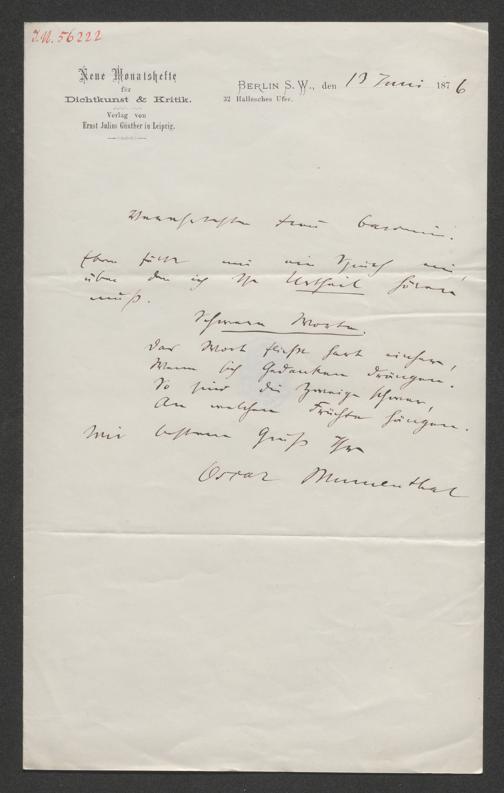 I.N. 56222
Neue Monatshefte
für
Dichtkunst & Kritik.
Verlag von
Ernst Julius Günther in Leipzig.
BERLIN S. W., den 13 Juni 1876
32 Hallesches Ufer.
Verehrteste Frau Baronin!
Eben fällt mir ein Spruch ein,
über den ich Ihr Urtheil hören
muß.
Schwere Worte.
Das Wort fließt hart einher,
Wenn sich Gedanken drängen.
So sind die Zweige schwer,
An welchen Früchte hängen.
Mit bestem Gruß Ihr
Oscar Blumenthal